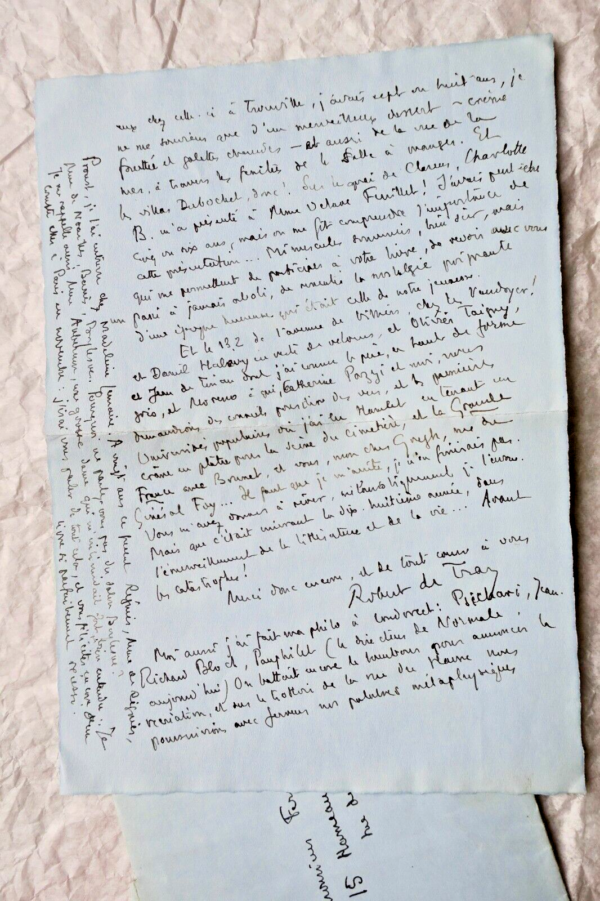 eux chez elle-ci à Trouville, j'avais sept ou huit ans, je
ne me souviens que d'un merveilleux dessert — crème
fouettée et galettes chaudes — et aussi de la vue de la
mer, à travers les fenêtres de la salle à manger. Et
les villas Dubochet, donc! Sur le quai de Clarens, Charlotte
B. m'a présenté à Mme Octave Feuillet! J'avais peut-être
cinq ou six ans, mais on me fit comprendre l'importance de
cette présentation... Minuscules souvenirs, bien sûr, mais
qui me permettent de participer à votre livre, de revoir avec vous
passé à jamais aboli, de ressentir la nostalgie poignante
d'une époque heureuse qui était celle de notre jeunesse.
Et le 132 de l'avenue de Villiers, chez les Vaudoyer!
et Daniel Halévy en veste de velours, et Olivier Taigny,
et Jean de Tinan dont j'ai connu le père, en haut de forme
gris, et Moreno à qui, Catherine Pozzi et moi, nous
demandions des conseils pour diction des vers, et les premières
Universités populaires où j'ai lu Hamlet en tenant un
crâne en plâtre pour la scène du cimetière, et la Grande
France avec Bonnet, et vous, mon cher Gregh, rue du
Général Foy... Il faut que je m'arrête, je n'en finirais pas.
Vous m'avez donné à rêver, mélancoliquement, je l'avoue.
Mais que c'était enivrant la dix-huitième année, dans
l'émerveillement de la littérature et de la vie... Avant
les catastrophes!
Merci donc encore, et de tout cœur à vous
Robert de Traz
Moi aussi j'ai fait ma philo à Condorcet: Psichari, Jean-
Richard Bloch, Pauphilet (le directeur de Normale
aujourd'hui) On battait encore le tambour pour annoncer la
récréation, et sur le trottoir de la rue du Havre nous
poursuivions avec ferveur nos palabres métaphysiques
Proust, je l'ai entrevu chez Madeleine Lemaire. A vingt ans ce furent Régnier, Mme de Régnier,
Mme de Noailles, Barrès, Boylesve. Pourquoi ne parlez-vous pas du salon
Je me rappelle aussi Mme Aubernon, une grosse dame qui m'intimidait
compte être à Paris en novembre: j'irai vous parler de tout cela, et vous féliciter encore d'un
livre si parfaitement réussi.
15 Hameau